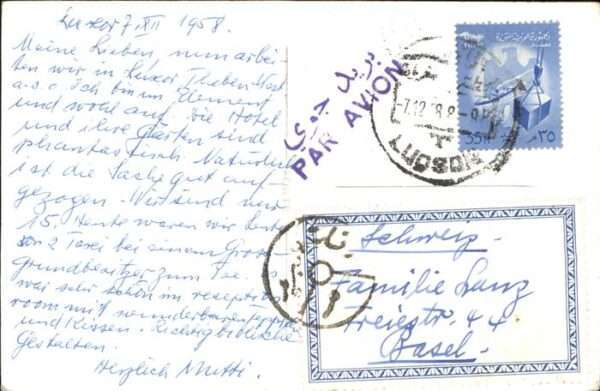 Luxor 7. XII 1958.
Meine Lieben, nun arbei-
ten wir in Luxor Theben-West
a.s.o. Ich bin im Element
und wohl auf. Die Hotel
und ihre Gärten sind
phantastisch. Natürlich
ist die Sache gut auf-
gezogen. Wir sind nur
15. Heute waren wir
2 Taxi bei einem Gross-
grundbesitzer zum Tee. Es
war sehr schön im reception
room mit wunderbaren
und Kissen. Richtig biblische
Gestalten.
Herzlich Mutti.
بريد جوي
PAR AVION
-7.12.58.8-9
35 M
٣٥
Schweiz
Familie Lanz
Freiestr. 44
Basel